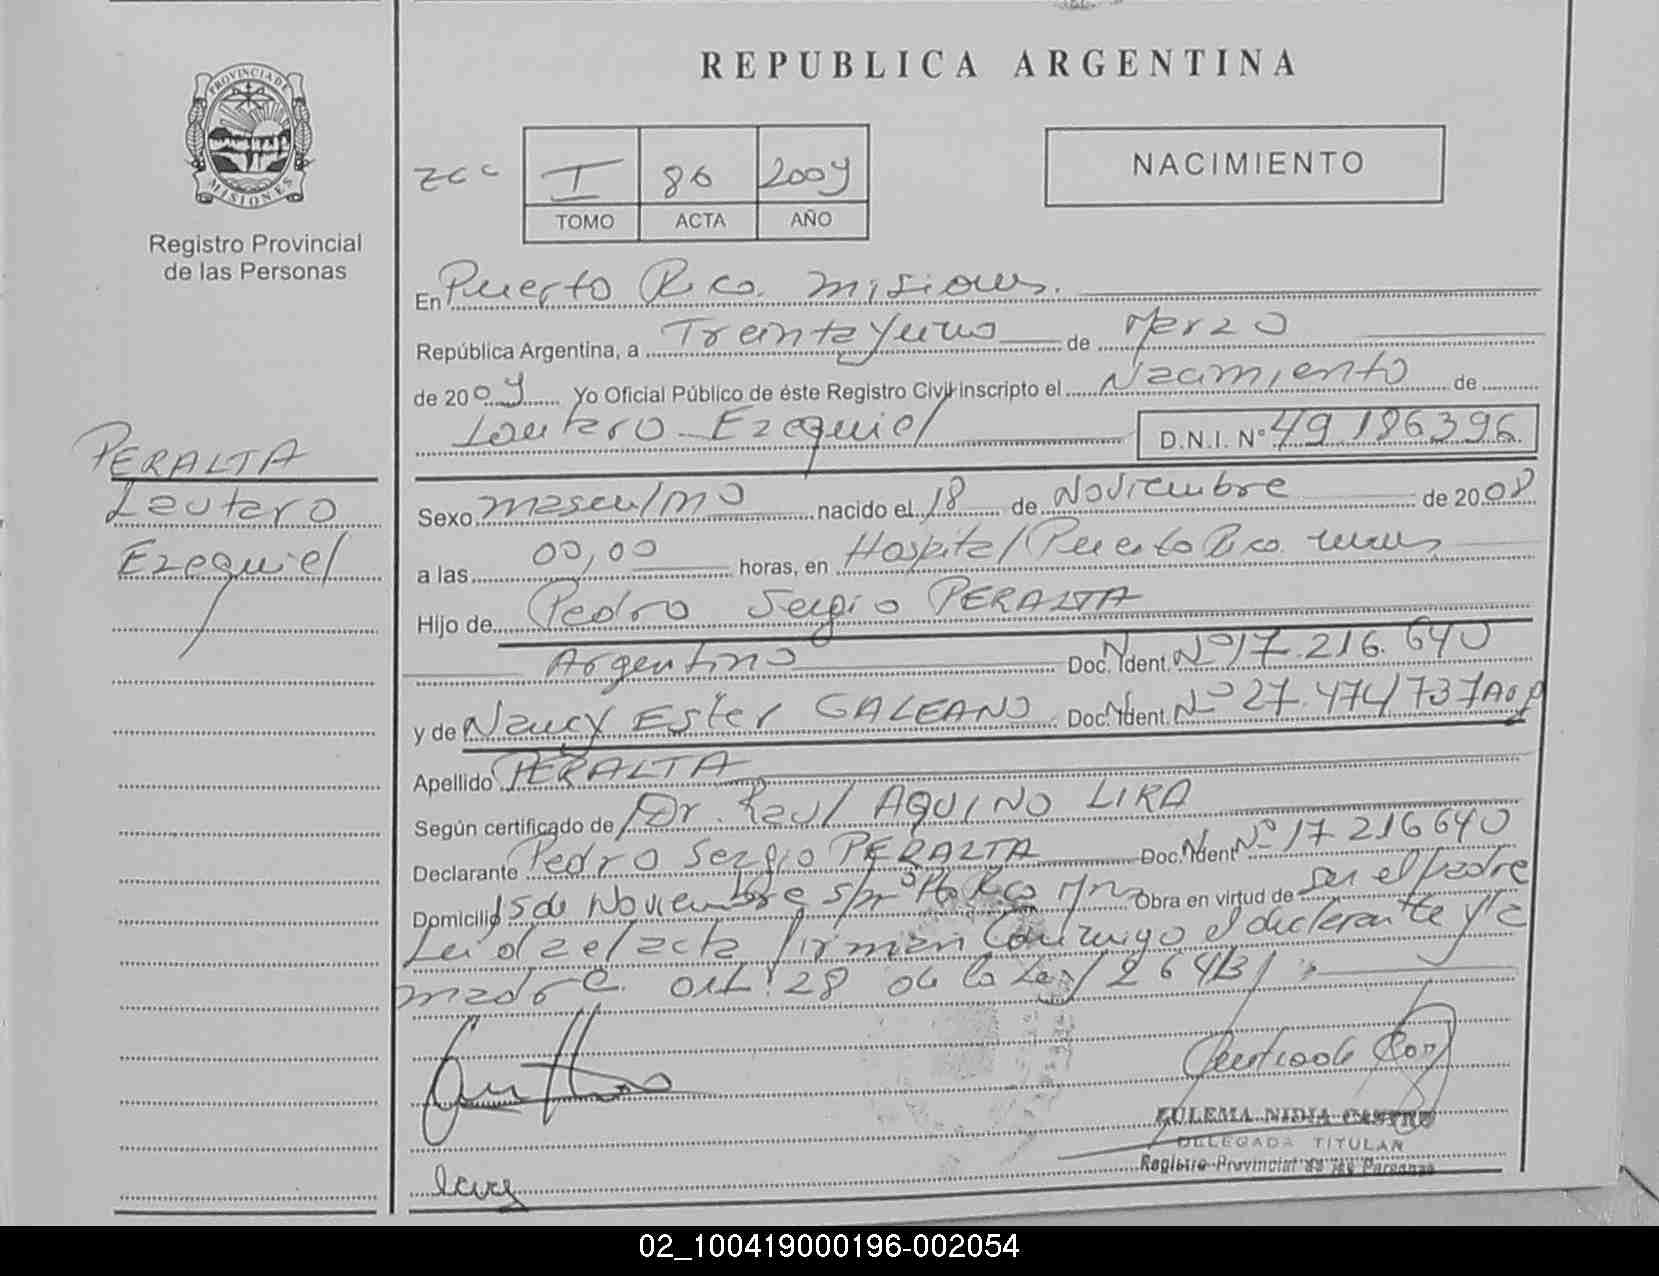 PROVINCIA DE
MISIONES
Registro Provincial
de las Personas
PERALTA
Lautaro
Ezequiel
REPUBLICA ARGENTINA
I 86 2009
TOMO ACTA AÑO
NACIMIENTO
En Puerto Rico. Misiones.
República Argentina, a Treinta y uno de Marzo
de 2009 Yo Oficial Público de éste Registro Civil inscripto el Nacimiento de
Lautaro Ezequiel D.N.I. Nº 49.186396
Sexo masculino nacido el 18 de Noviembre de 2008
a las 00,00 horas, en Hospital Puerto Rico.
Hijo de Pedro Sergio PERALTA
Argentino Doc. Ident. Nº 17.216.640
y de Nancy Ester GALEANO Doc. Ident. Nº 27.474737 Arg
Apellido PERALTA
Según certificado de Dr. Raul AQUINO LIRA
Declarante Pedro Sergio PERALTA Doc. Ident Nº 17 216640
Domicilio 15 de Noviembre s/nº Pto Rco Mnes Obra en virtud de ser el padre
Leida el acta firman conmigo el declarante y la
madre. art. 28 de la Ley 26413/
ZULEMA NIDIA CASTRO
DELEGADA TITULAR
Registro Provincial de las Personas
02_100419000196-002054